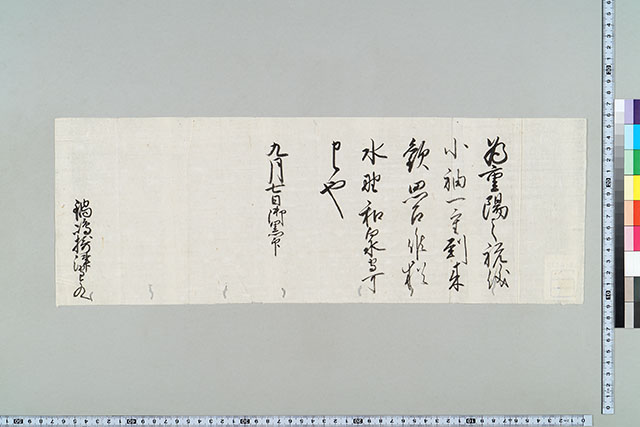 為重陽之祝儀
小袖一重到来
歓思召候猶
水野和泉守可
申也
九月七日御黒印
鍋嶋摂津守との